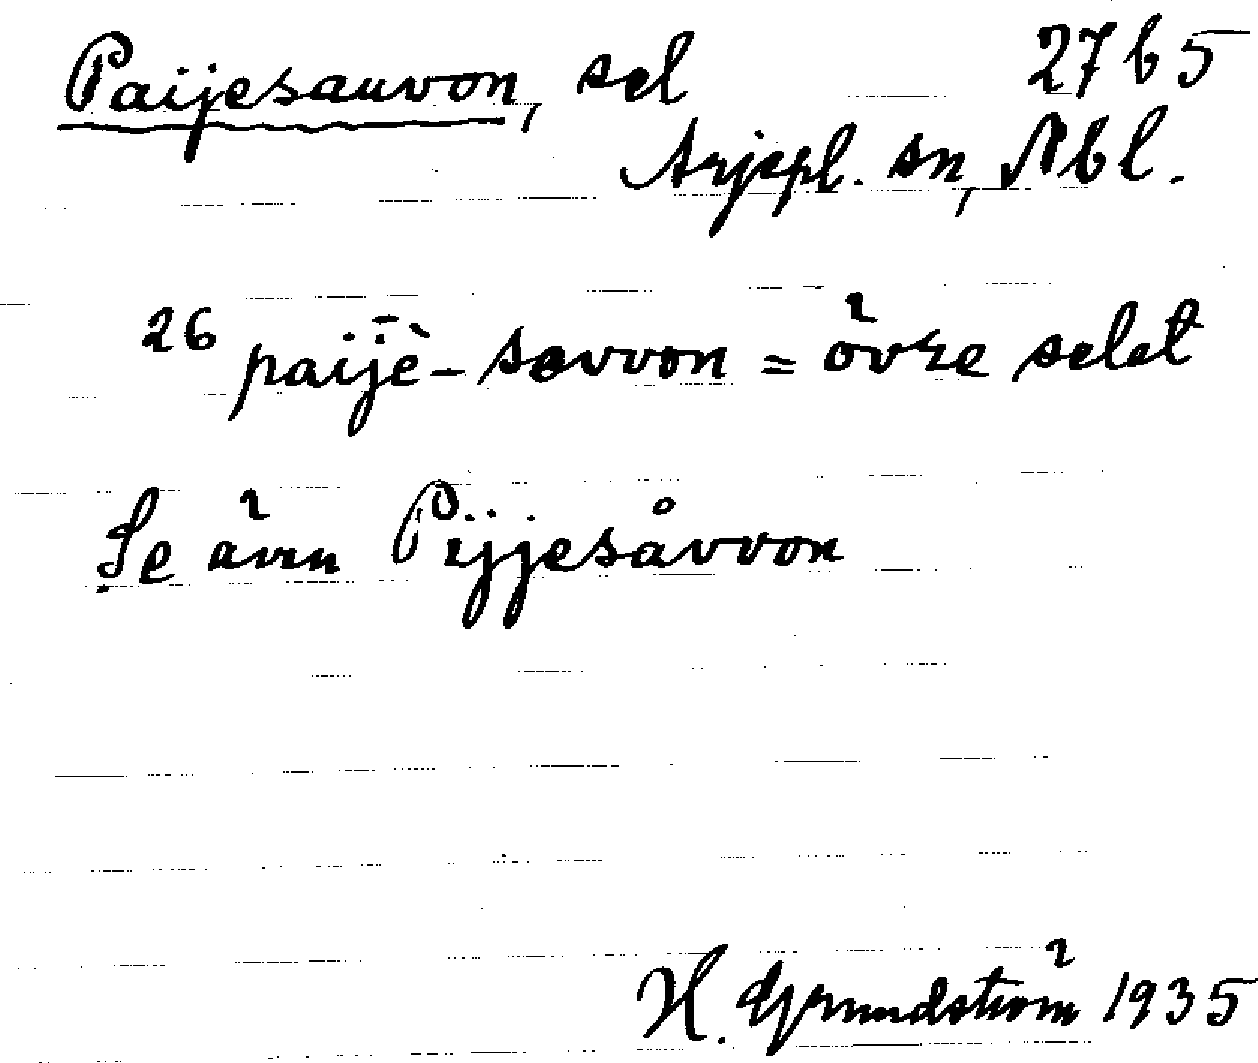 Paijesauvon, sel 27 b 5
Arjepl. sn, Nbl.
26 paijḕ-savvon = övre selet
Se även Pijjesåvvon
H. Grundström 1935